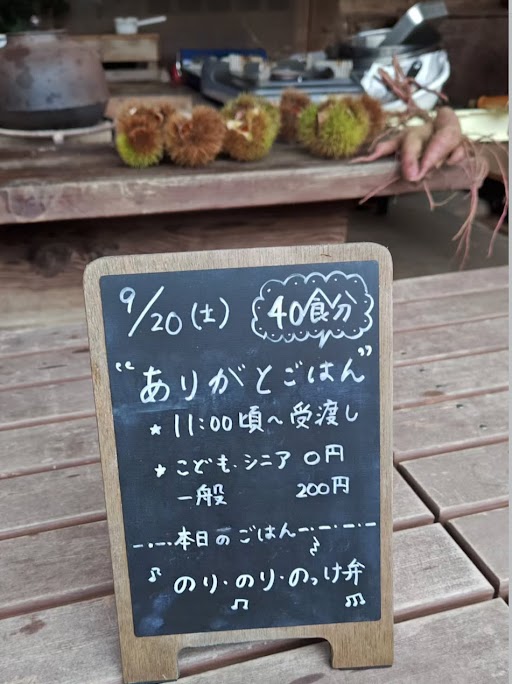 9/20(土)
40食分
"ありがとごはん"
★ 11:00頃〜受渡し
★ こども・シニア 0円
一般 200円
--・--・本日のごはん--・--・--・--
♪ のり・のり・のっけ弁